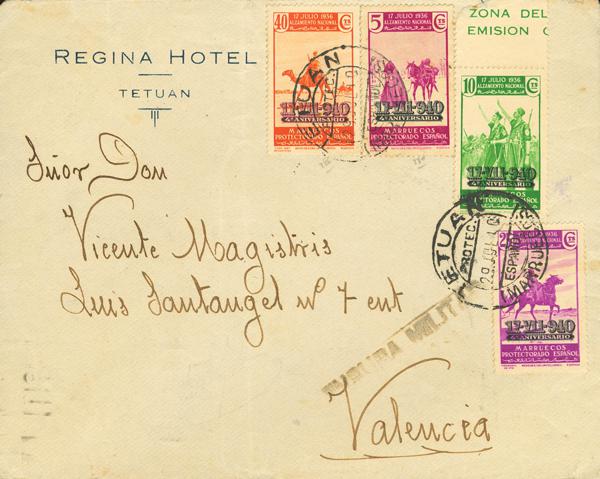 REGINA HOTEL
TETUAN
40 CTS
17 JULIO 1936
ALZAMIENTO NACIONAL
17-VII-940
4º ANIVERSARIO
MARRUECOS
PROTECTORADO ESPAÑOL
5 CTS
17 JULIO 1936
ALZAMIENTO NACIONAL
17-VII-940
4º ANIVERSARIO
MARRUECOS
PROTECTORADO ESPAÑOL
ZONA DEL
EMISION
10 CTS
17 JULIO 1936
ALZAMIENTO NACIONAL
17-VII-940
4º ANIVERSARIO
MARRUECOS
PROTECTORADO ESPAÑOL
17 JULIO 1936
ALZAMIENTO NACIONAL
17-VII-940
4º ANIVERSARIO
MARRUECOS
PROTECTORADO ESPAÑOL
TETUAN
Señor Don
Vicente Magistris
Luis Santangel nº 7 ent
CENSURA MILITAR
Valencia